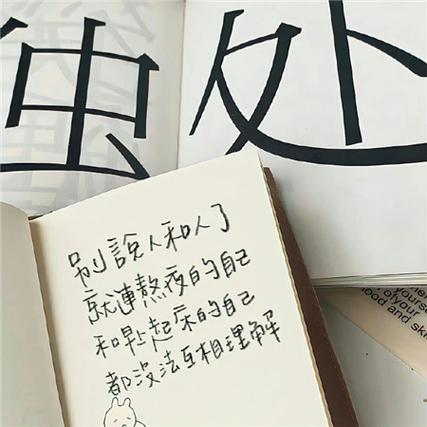 独处
别說人和人了
就連熬夜的自己
和早起床的自己
都沒法互相理解
yourse
of your
ood and ski